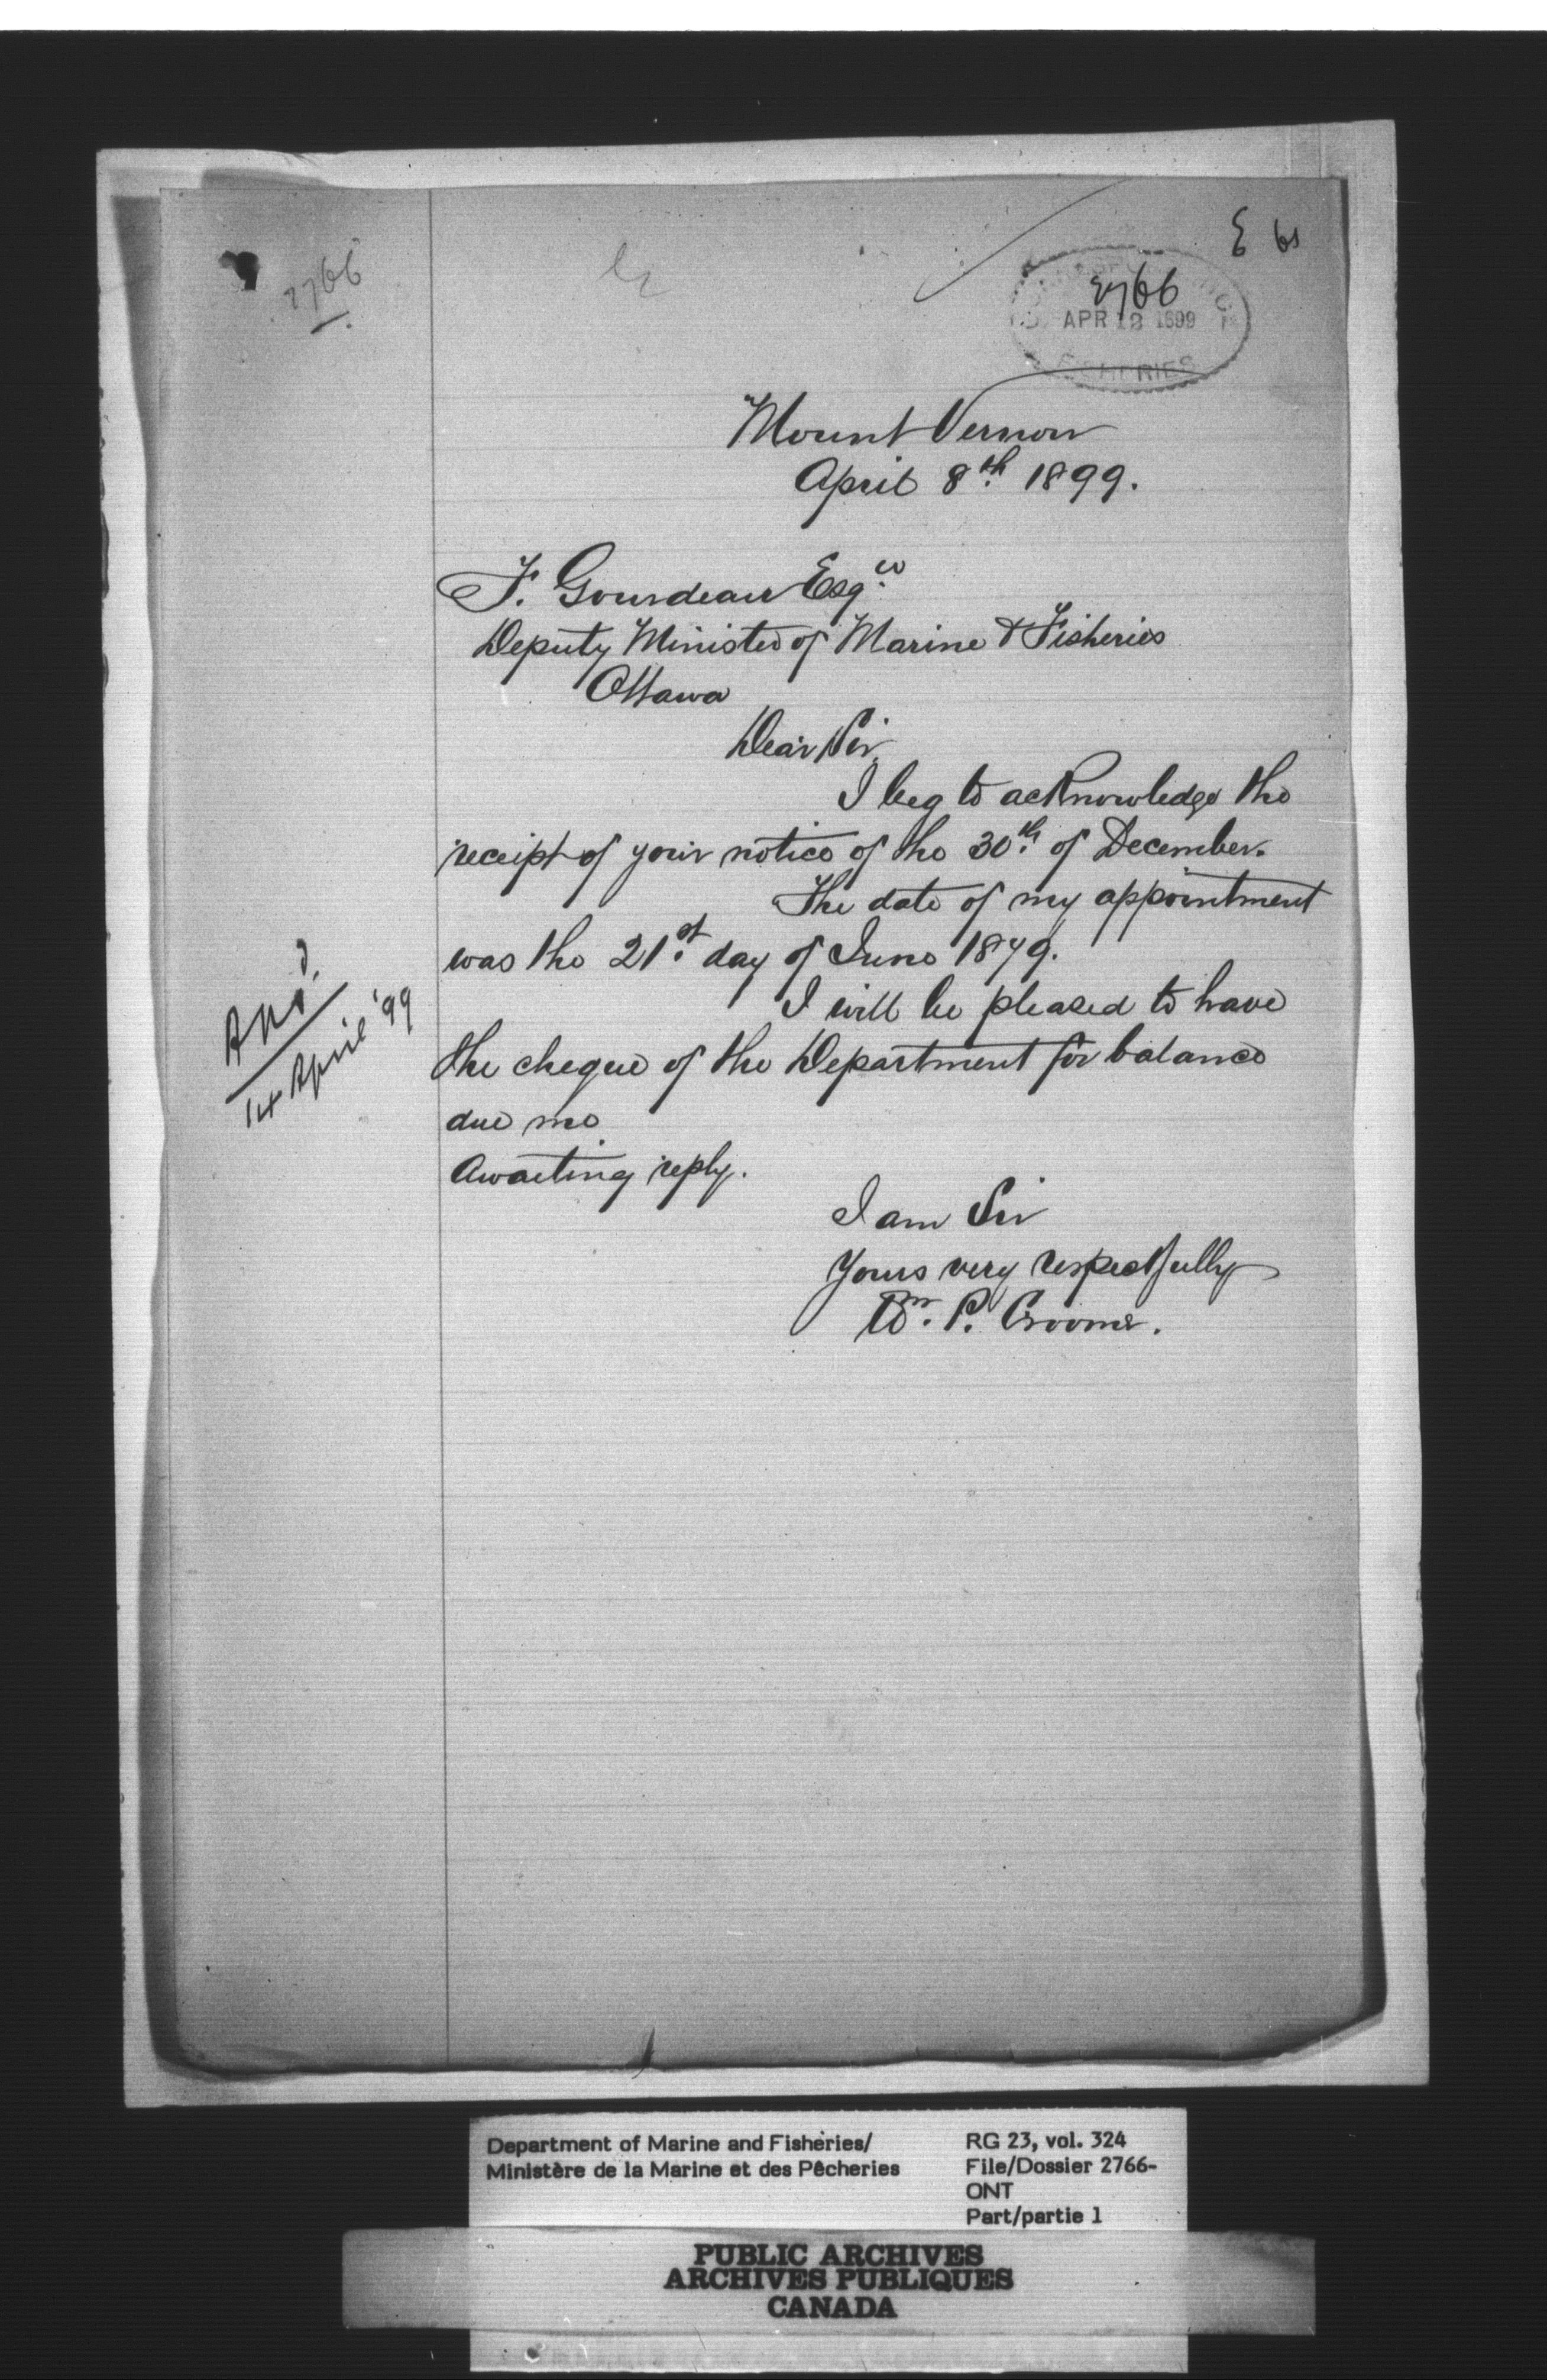 E 61
2766
2766
APR 12 1899
FISHERIES
Mount Vernon
April 8th 1899.
F. Gourdeau Esqre
Deputy Minister of Marine & Fisheries
Ottawa
Dear Sir,
I beg to acknowledge the
receipt of your notice of the 30th of December.
The date of my appointment
was the 21st day of June 1879.
I will be pleased to have
the cheque of the Department for balance
due me
Awaiting reply.
I am Sir
Yours very respectfully
Wm. P. Croome.
Ansd.
14 April '99
Department of Marine and Fisheries/
Ministère de la Marine et des Pêcheries
RG 23, vol. 324
File/Dossier 2766-
ONT
Part/partie 1
PUBLIC ARCHIVES
ARCHIVES PUBLIQUES
CANADA